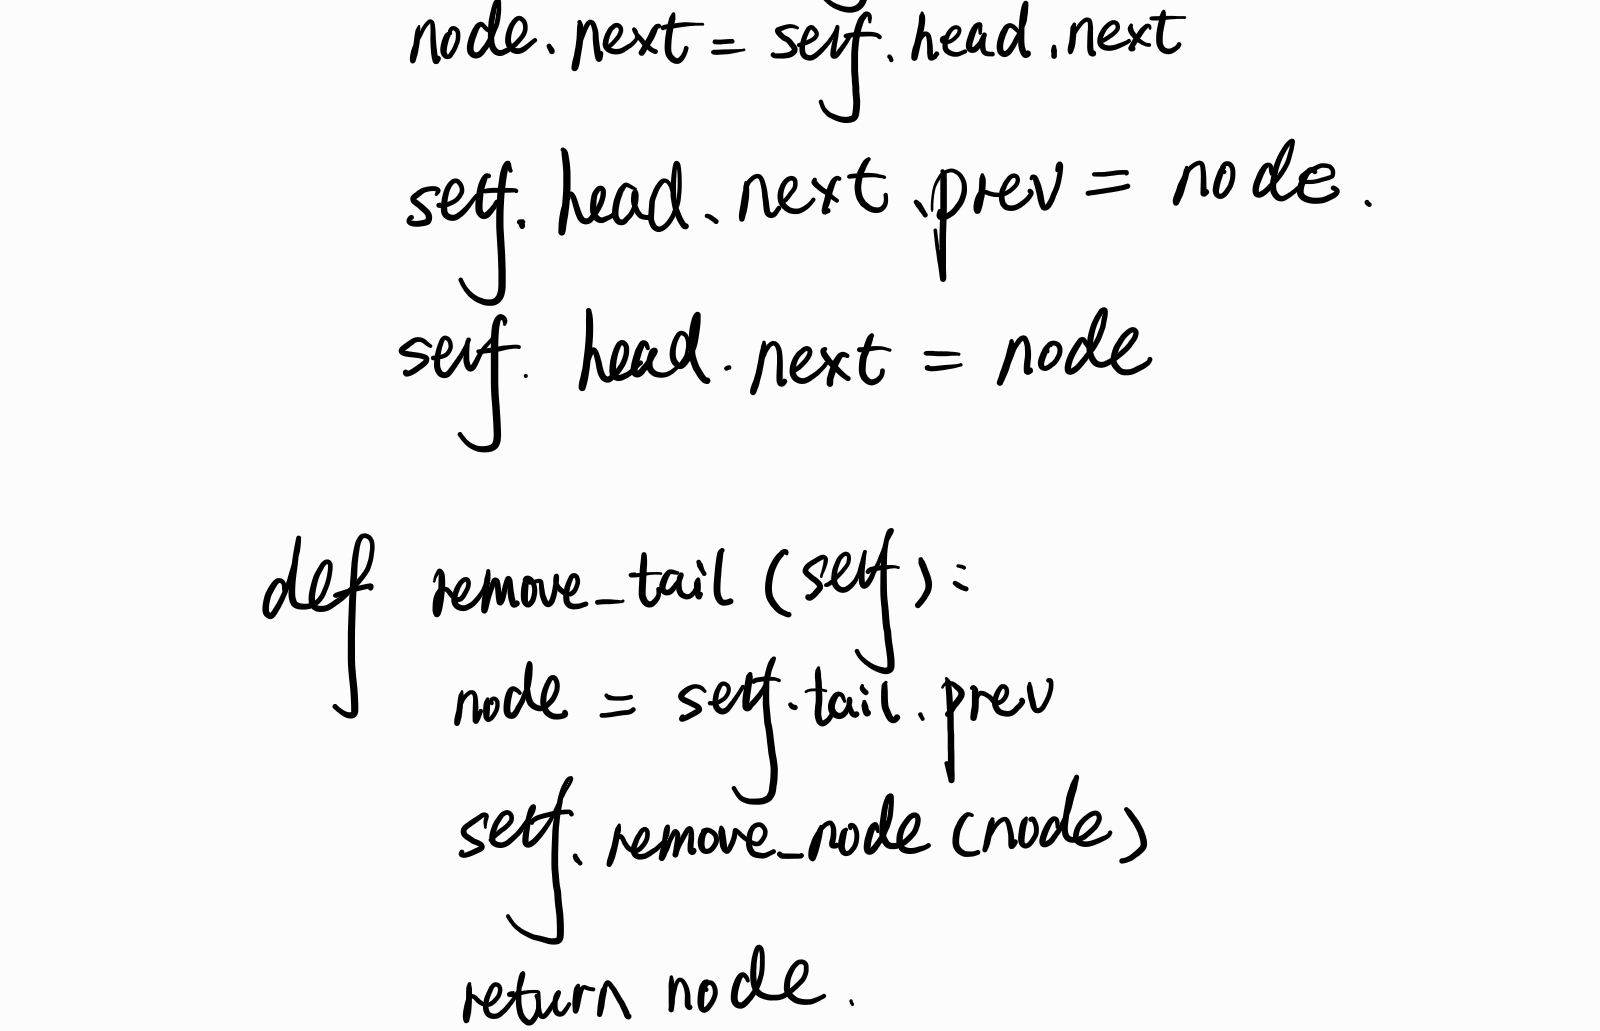 node.next = self.head.next
self.head.next.prev = node.
self.head.next = node
def remove_tail (self):
node = self.tail.prev
self.remove_node (node)
return node.